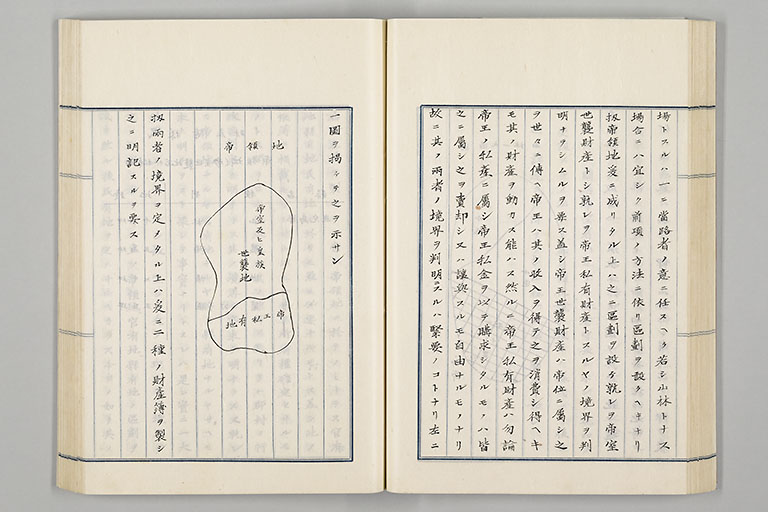 場トスルハ一ニ當路者ノ意ニ任スヘク若シ山林トナス
場合ニハ宜シク前項ノ方法ニ依リ區劃ヲ設クヘキナリ
扨帝領地爰ニ成リタル上ハ之ニ區劃ヲ設ケ孰レヲ帝室
世襲財産トシ孰レヲ帝王私有財産トスルヤノ境界ヲ判
明ナラシムルヲ要ス蓋シ帝王世襲財産ハ帝位ニ屬シ之
ヲ世々ニ傳ヘ帝王ハ其ノ收入ヲ得テ之ヲ消費シ得ヘキ
モ其ノ財産ヲ動カス能ハス然ルニ帝王私有財産ハ勿論
帝王ノ私産ニ屬シ帝王私金ヲ以テ購求シタルモノハ皆
之ニ屬シ之ヲ賣却シ又ハ讓與スルモ自由ナルモノナリ
故ニ其ノ兩者ノ境界ヲ判明スルハ緊要ノコトナリ左ニ
一圖ヲ揭ケテ之ヲ示サン
帝領地
帝室及ヒ皇族
世襲地
帝王私有地
扨兩者ノ境界ヲ定メタル上ハ爰ニ二種ノ財産簿ヲ製シ
之ニ明記スルヲ要ス